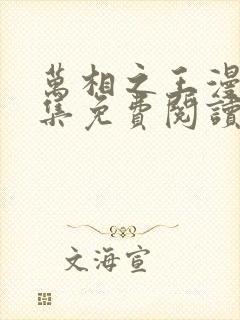 萬相之王漫
集免費閱讀
文海宣